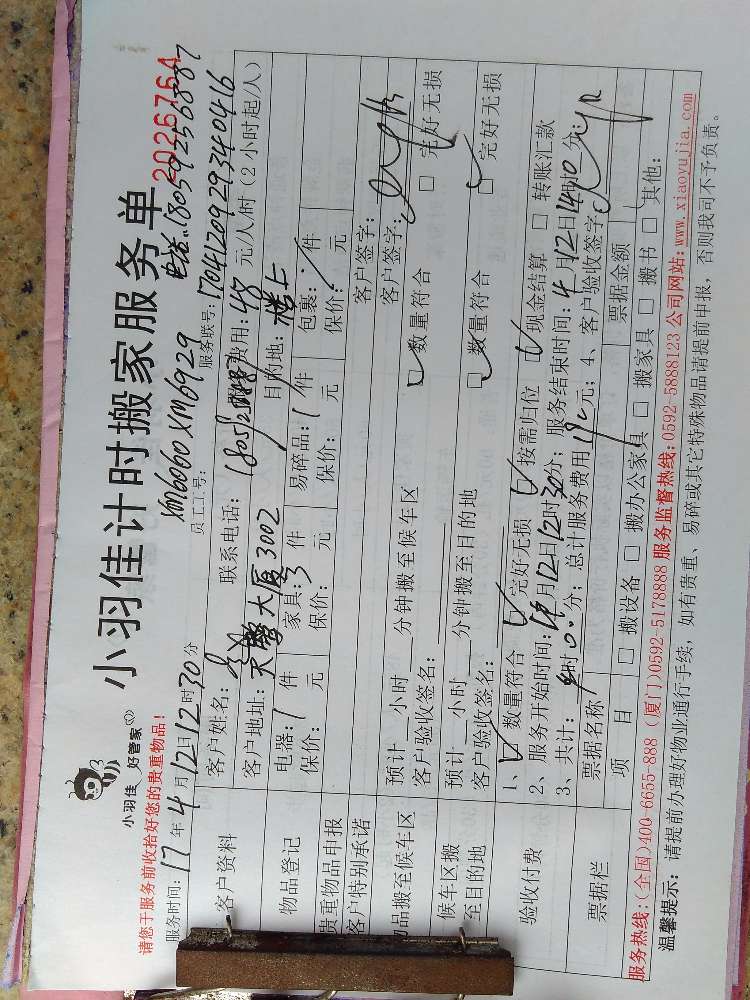 小羽佳 好管家
小羽佳计时搬家服务单
2026764
请您于服务前收拾好您的贵重物品！
XM6060 XM6929 电话：18059256887
服务时间：17年4月12日12时30分 员工工号： 服务联号：1704120929340416
客户资料 客户姓名： 联系电话： 服务费用：48元/人/时（2小时起/人）
客户地址：天鹭大厦3002 目的地：楼上
物品登记 电器：1件 家具：3件 易碎品：1件 包裹：件
保价：元 保价：元 保价：元 保价：元
贵重物品申报 客户签字：
客户特别承诺 客户签字：
物品搬至候车区 预计 小时 分钟搬至候车区 数量符合 完好无损
客户验收签名：
候车区搬至目的地 预计 小时 分钟搬至目的地 数量符合 完好无损
客户验收签名：
验收付费 1、数量符合 完好无损 按需归位 现金结算 转账汇款
2、服务开始时间：4月12日12时30分；服务结束时间：4月12日14时10分；
3、共计：时分；总计服务费用192元；4、客户验收签字：
票据栏 票据名称 票据金额
项目 搬设备 搬办公家具 搬家具 搬书 其他：
服务热线：(全国)400-6655-888 (厦门)0592-5178888 服务监督热线：0592-5888123 公司网站：www.xiaoyujia.com
温馨提示：请提前办理好物业通行手续，如有贵重、易碎或其它特殊物品请提前申报，否则我司不予负责。